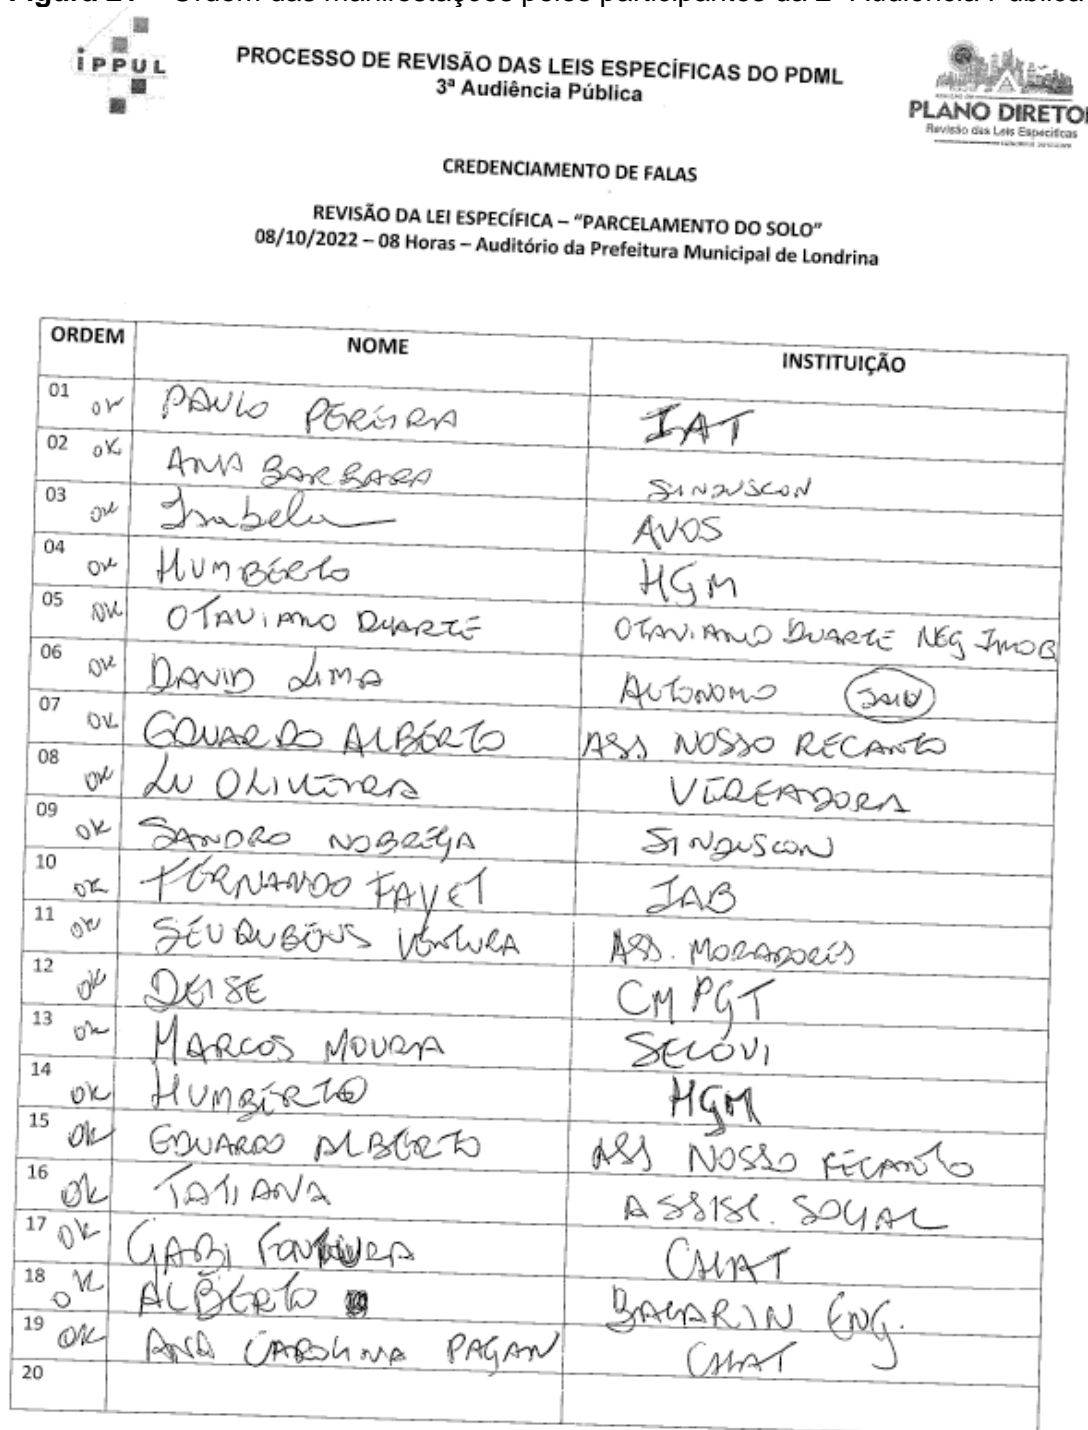 Figura 21 – Ordem das manifestações pelos participantes da 2ª Audiência Pública
IPPUL
PROCESSO DE REVISÃO DAS LEIS ESPECÍFICAS DO PDML
3ª Audiência Pública
PLANO DIRETOR
Revisão das Leis Específicas
CREDENCIAMENTO DE FALAS
REVISÃO DA LEI ESPECÍFICA – “PARCELAMENTO DO SOLO”
08/10/2022 – 08 Horas – Auditório da Prefeitura Municipal de Londrina
ORDEM NOME INSTITUIÇÃO
01 OK PAULO PEREIRA IAT
02 OK ANA BARBARA SINDUSCON
03 OK Isabela AVOS
04 OK HUMBERTO HGM
05 OK OTAVIANO DUARTE OTAVIANO DUARTE NEG IMOB
06 OK DAVID LIMA AUTONOMO SAIU
07 OK EDUARDO ALBERTO ASS NOSSO RECANTO
08 OK LU OLIVEIRA VEREADORA
09 OK SANDRO NOBREGA SINDUSCON
10 OK FERNANDO FAVET IAB
11 OK SEU RUBENS VENTURA ASS. MORADORES
12 OK DEISE CMPGT
13 OK MARCOS MOURA SECOVI
14 OK HUMBERTO HGM
15 OK EDUARDO ALBERTO ASS NOSSO RECANTO
16 OK TATIANA ASSIST. SOCIAL
17 OK GABI FONTOURA CHAT
18 OK ALBERTO BACARIN ENG.
19 OK ANA CAROLINA PAGAN CHAT
20